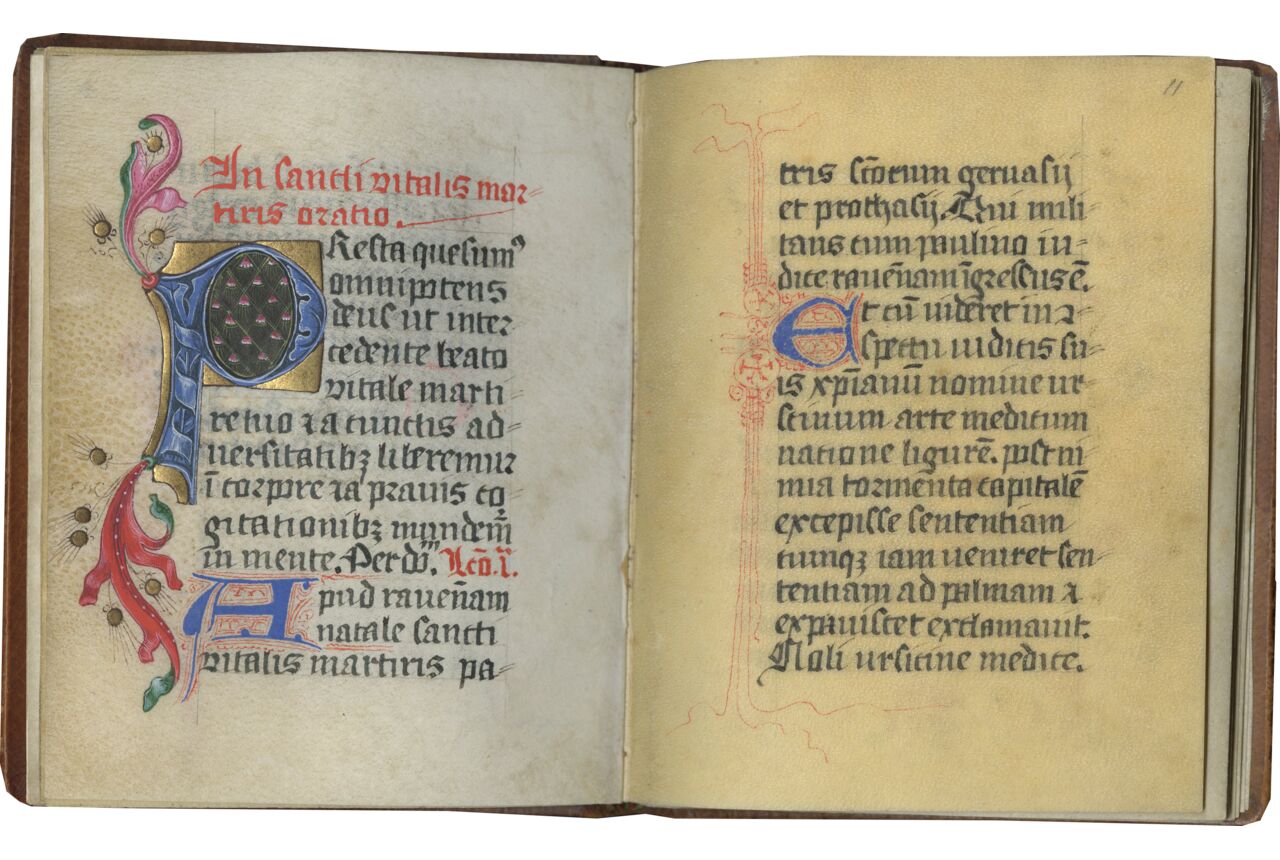 In sancti vitalis mar=
tiris oratio.
PResta quesumꝰ
omnipotens
deus ut inter=
cedente beato
vitale marti=
re tuo ⁊ a cunctis ad=
uersitatibꝫ liberemur
ī corpore ⁊ a prauis co=
gitationibꝫ mundem̄
in mente. Per dōm. Lcō. ī.
Apud raueñam
natale sancti
vitalis martiris pa=
11
tris sc̄orum geruasij
et prothasij. Qui mili=
tans cum paulino iu=
dice raueñam īgressus ē.
Et cū uideret in a=
spectu iudicis su=
is xp̄ianū nomine ur=
sicinum arte medicum
natione ligurē. post ni=
mia tormēta capitalē
excepisse sententiam
cumqꝫ iam ueniret sen=
tentiam ad palmam ⁊
expauisset exclamauit.
Noli ursicine medice.